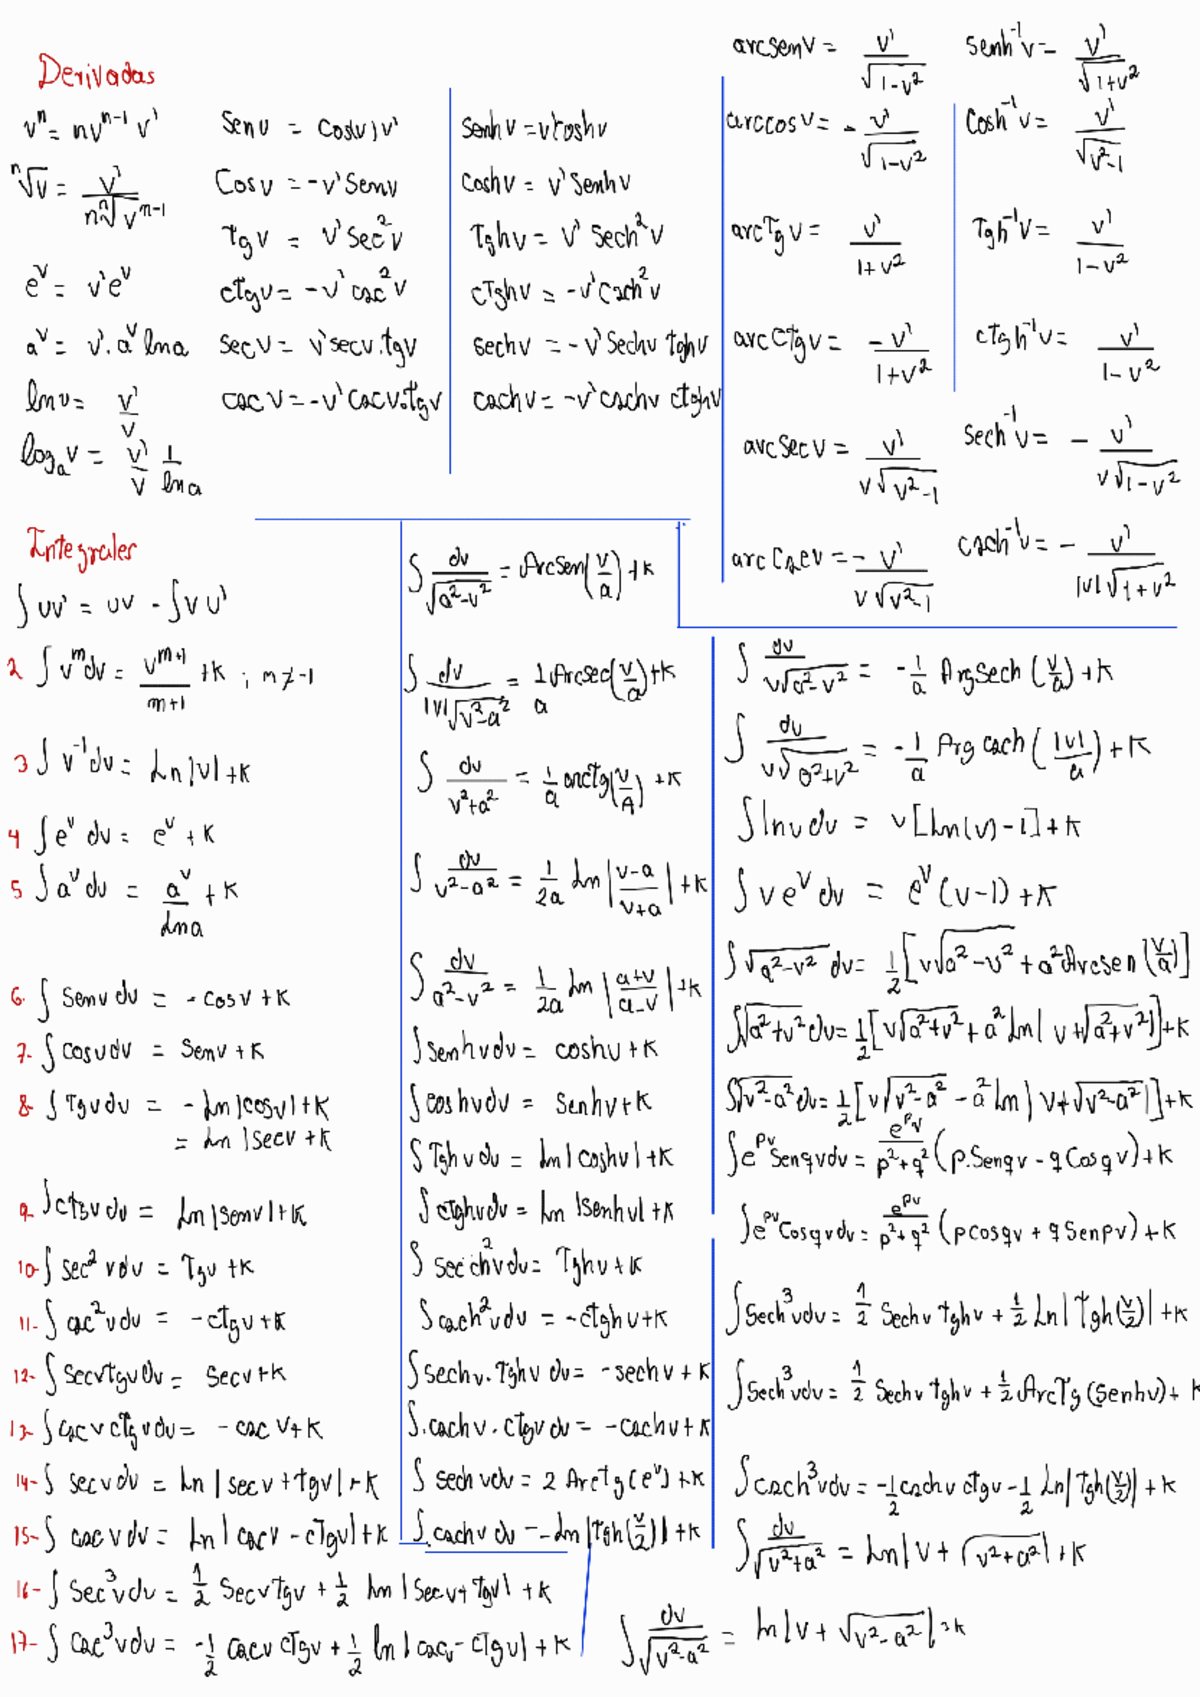 Derivadas
vⁿ = nvⁿ⁻¹ v'
ⁿ√v = v' / (n ⁿ√vⁿ⁻¹)
eᵛ = v'eᵛ
aᵛ = v'. aᵛ ln a
ln v = v'/v
logₐ v = v'/v 1/ln a
Sen v = Cos(v) v'
Cos v = -v' Sen v
Tg v = v' Sec² v
cTg v = -v' csc² v
Sec v = v' sec v . tg v
csc v = -v' Csc v . Tg v
Senh v = v' cosh v
Cosh v = v' Senh v
Tgh v = v' Sech² v
cTgh v = -v' Csch² v
sech v = -v' Sech v tgh v
csch v = -v' csch v ctgh v
arcsen v = v' / √(1-v²)
arccos v = - v' / √(1-v²)
arcTg v = v' / (1+v²)
arc CTg v = -v' / (1+v²)
arc Sec v = v' / (v√(v²-1))
arc Csc v = - v' / (v√(v²-1))
senh⁻¹ v = v' / √(1+v²)
Cosh⁻¹ v = v' / √(v²-1)
Tgh⁻¹ v = v' / (1-v²)
cTgh⁻¹ v = v' / (1-v²)
Sech⁻¹ v = - v' / (v√(1-v²))
csch⁻¹ v = - v' / (|v|√(1+v²))
Integrales
∫ uv' = uv - ∫ v u'
2 ∫ vᵐ dv = vᵐ⁺¹ / (m+1) + K ; m ≠ -1
3 ∫ v⁻¹ dv = Ln |v| + K
4 ∫ eᵛ dv = eᵛ + K
5 ∫ aᵛ dv = aᵛ / Ln a + K
6. ∫ Sen v dv = - cos v + K
7- ∫ cos v dv = Sen v + K
8- ∫ Tg v dv = - Ln |cos v| + K
= Ln |Sec v + K
9. ∫ cTg v dv = Ln |Sen v| + K
10- ∫ sec² v dv = Tg v + K
11- ∫ csc² v dv = - cTg v + K
12- ∫ Sec v tg v dv = Sec v + K
13- ∫ Csc v cTg v dv = - csc v + K
14- ∫ sec v dv = Ln | sec v + tg v | + K
15- ∫ csc v dv = Ln | csc v - cTg v | + K
16- ∫ Sec³ v dv = 1/2 Sec v Tg v + 1/2 Ln | Sec v + Tg v | + K
17- ∫ Csc³ v dv = -1/2 csc v cTg v + 1/2 ln | csc v - cTg v | + K
∫ dv / √(a²-v²) = ArcSen(v/a) + K
∫ dv / (|v|√(v²-a²)) = 1/a Arcsec(v/a) + K
∫ dv / (v²+a²) = 1/a arctg(v/A) + K
∫ dv / (v²-a²) = 1/2a Ln |(v-a)/(v+a)| + K
∫ dv / (a²-v²) = 1/2a Ln |(a+v)/(a-v)| + K
∫ senh v dv = cosh v + K
∫ cosh v dv = Senh v + K
∫ Tgh v dv = Ln | cosh v | + K
∫ cTgh v dv = Ln |Senh v| + K
∫ sech² v dv = Tgh v + K
∫ csch² v dv = - cTgh v + K
∫ sech v . Tgh v dv = - sech v + K
∫ .csch v . cTg v dv = - csch v + K
∫ sech v dv = 2 Arctg (eᵛ) + K
∫ .csch v dv = - Ln |Tgh(v/2)| + K
∫ dv / (v√(a²-v²)) = -1/a ArgSech (v/a) + K
∫ dv / (v√(a²+v²)) = -1/a Arg csch (|v|/a) + K
∫ ln v dv = v [Ln(v) - 1] + K
∫ v eᵛ dv = eᵛ (v-1) + K
∫ √(a²-v²) dv = 1/2 [v√(a²-v²) + a² Arcsen (v/a)]
∫ √(a²+v²) dv = 1/2 [v√(a²+v²) + a² Ln | v + √(a²+v²) |] + K
∫ √(v²-a²) dv = 1/2 [v√(v²-a²) - a² ln | v + √(v²-a²) |] + K
∫ eᵖᵛ Sen qv dv = eᵖᵛ / (p²+q²) (p.Sen qv - q Cos qv) + K
∫ eᵖᵛ Cos qv dv = eᵖᵛ / (p²+q²) (p cos qv + q Sen pv) + K
∫ Sech³ v dv = 1/2 Sech v tgh v + 1/2 Ln | Tgh (v/2) | + K
∫ Sech³ v dv = 1/2 Sech v tgh v + 1/2 ArcTg (Senh v) + K
∫ csch³ v dv = -1/2 csch v cTg v - 1/2 Ln | Tgh(v/2) | + K
∫ dv / √(v²+a²) = Ln | v + √(v²+a²) | + K
∫ dv / √(v²-a²) = ln | v + √(v²-a²) | + K